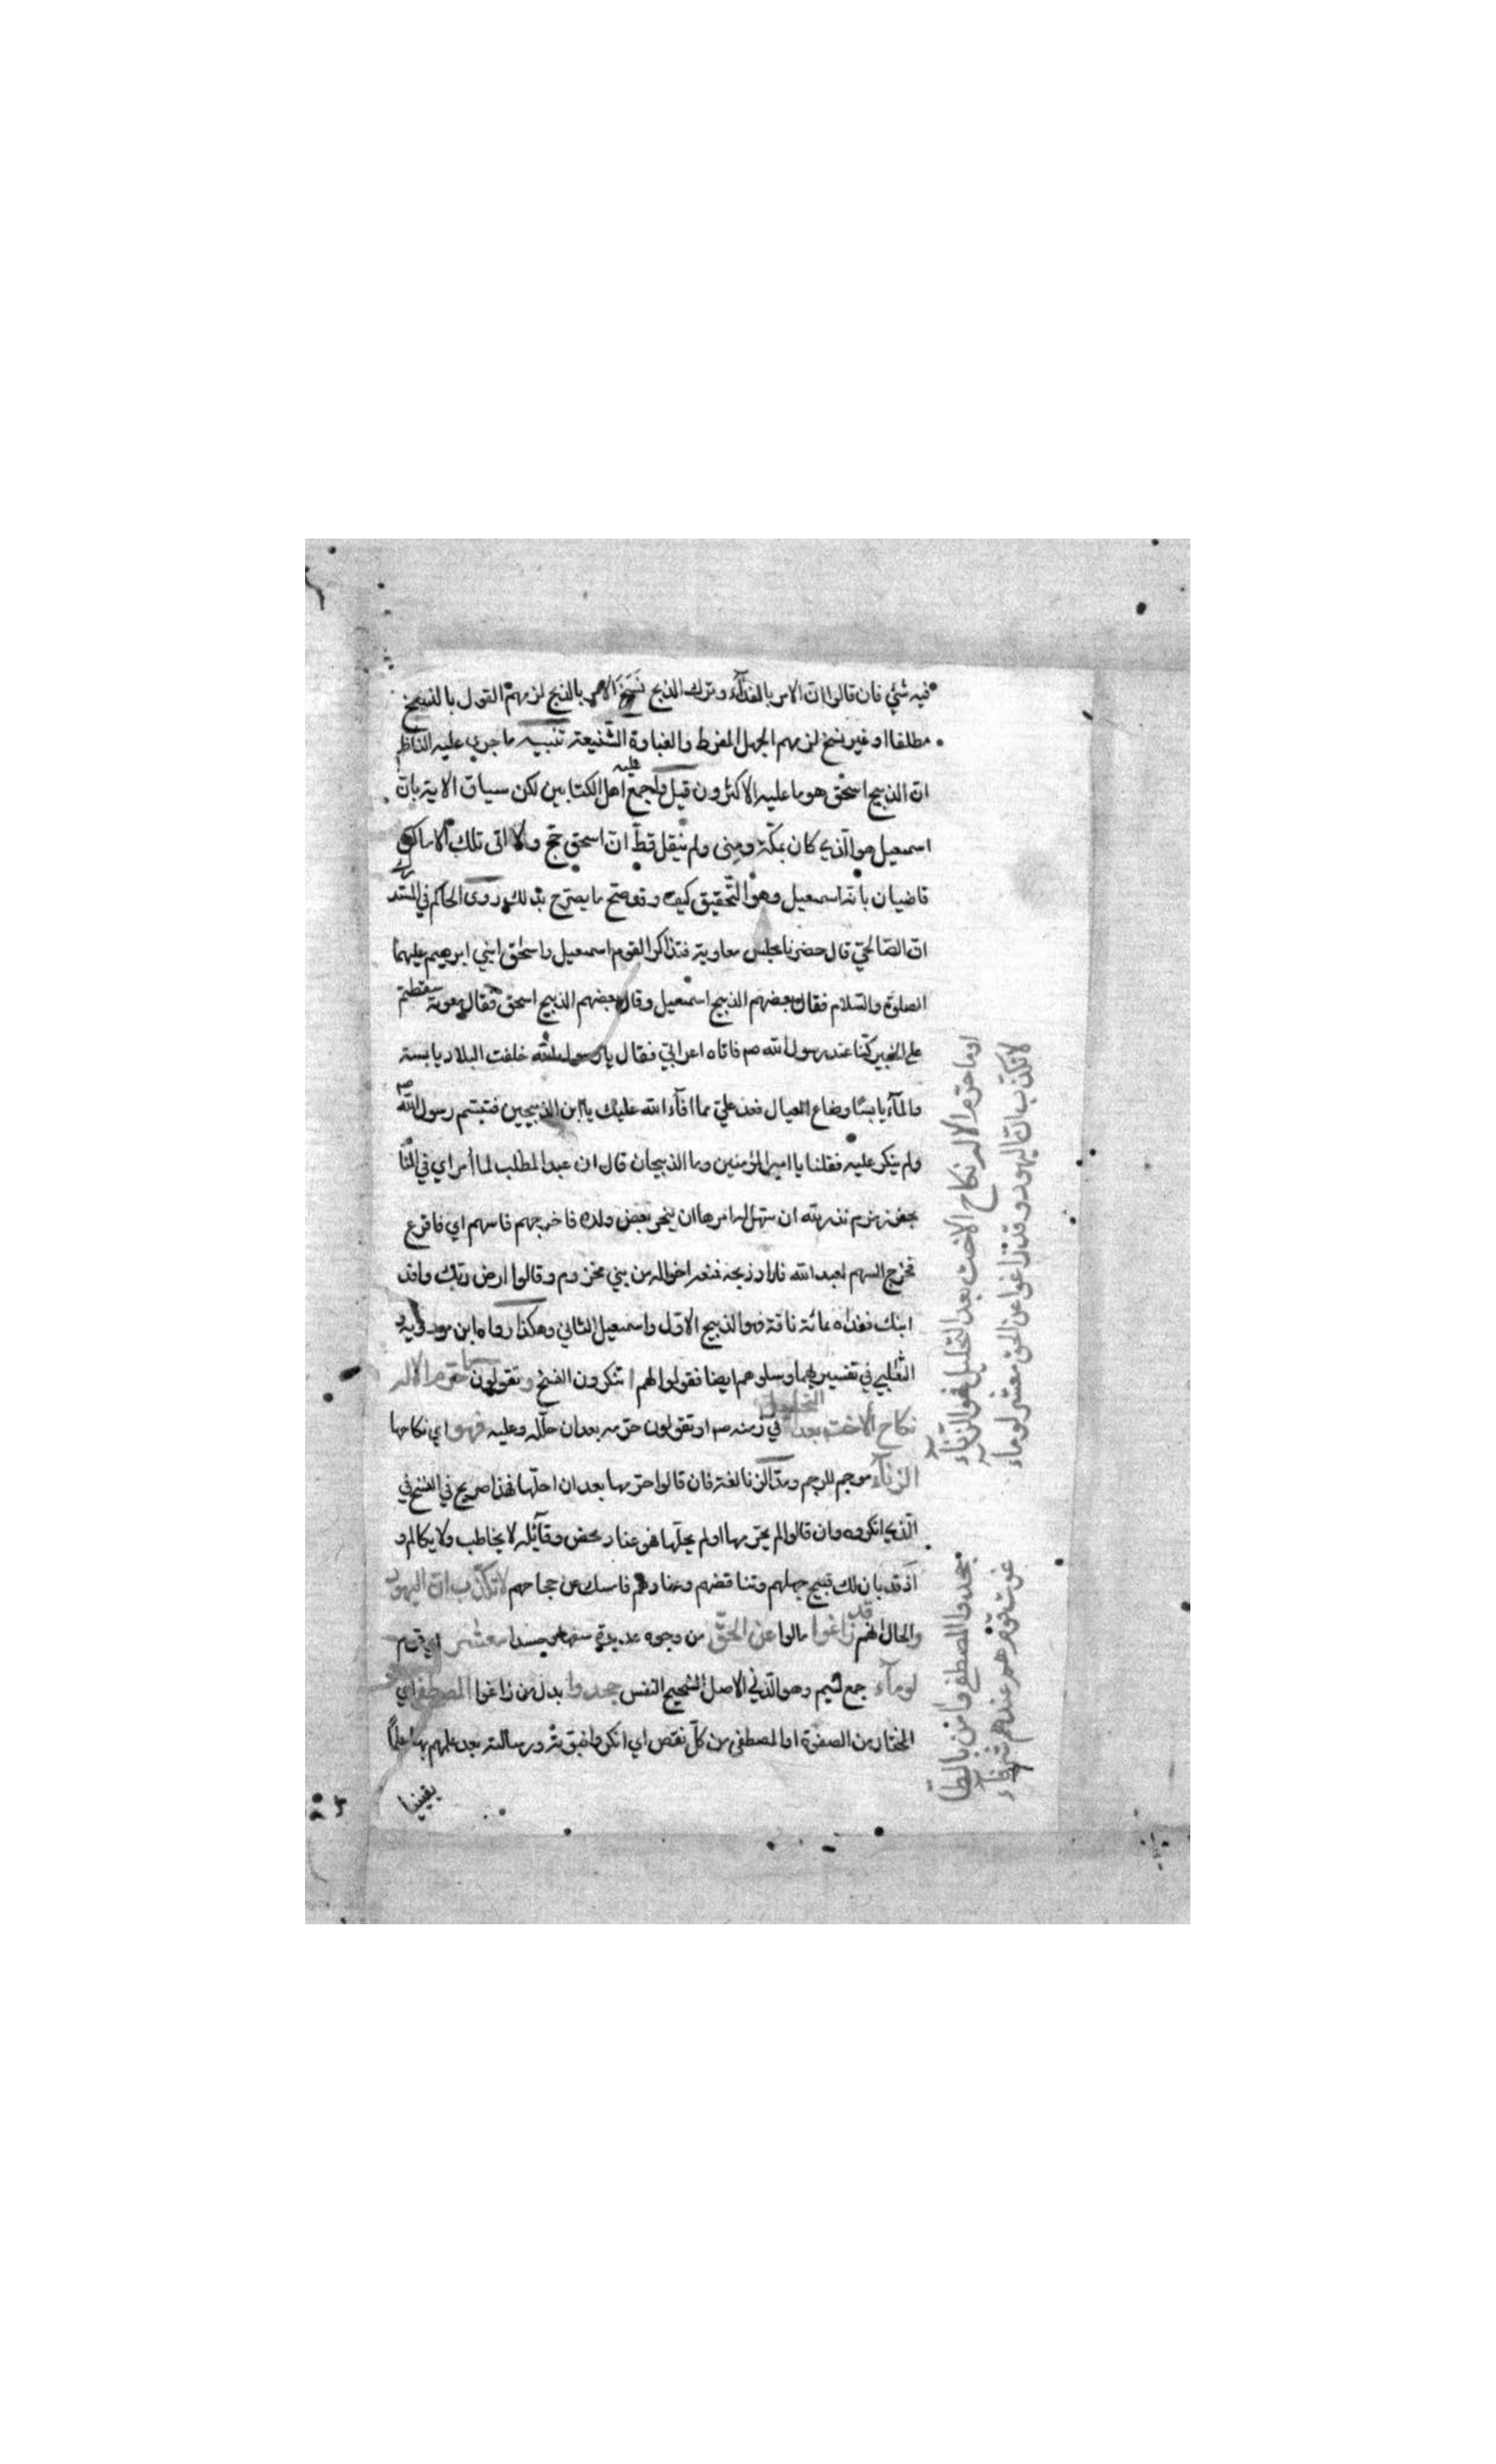 فيه شئ فان قالوا ان الامر بالفداء وترك الذبح نسخ الامر بالذبح لزمهم القول بالنسخ
مطلقا او غير نسخ لزمهم الجهل المفرط والغباوة الشنيعة تنبيه ما جرى عليه الناظم
ان الذبيح اسحق هو ما عليه الاكثرون قيل واجمع عليه اهل الكتابين لكن سياق الاية بان
اسمعيل هو الذي كان بمكة ومنى ولم ينقل قط ان اسحق حج ولا اتى تلك الاماكن
قاضيان بانه اسمعيل وهو التحقيق كيف وقد صح ما يصرح بذلك روى الحاكم في المستدرك
ان الصالحي قال حضرنا مجلس معاوية فتذاكر القوم اسمعيل واسحق ابني ابرهيم عليهما
الصلوة والسلام فقال بعضهم الذبيح اسمعيل وقال بعضهم الذبيح اسحق فقال معوية سقطتم
على الخبير كنا عند رسول الله صم فاتاه اعرابي فقال يا رسول الله خلفت البلاد يابسة
والماء يابسا وضاع العيال فعد علي مما افاء الله عليك يا ابن الذبيحين فتبسم رسول الله صم
ولم ينكر عليه فقلنا يا امير المؤمنين وما الذبيحان قال ان عبد المطلب لما أمر اي في المنام
بحفر زمزم نذر لله ان سهل له امرها ان ينحر بعض ولده فاخرجهم فاسهم اي فاقرع
فخرج السهم لعبد الله فاراد ذبحه فمنعه اخواله من بني مخزوم وقالوا ارض ربك وافد
ابنك ففداه بمائة ناقة فهو الذبيح الاول واسمعيل الثاني وهكذا رواه ابن مردويه و
الثعلبي في تفسيريهما وسلوهم ايضا فقولوا لهم اتنكرون الفسخ وتقولون ما حرم الاله
نكاح الاخت بعد التحليل في زمنه صم او تقولون حرمه بعد ان حلله وعليه فهو اي نكاحها
الزناء موجم للرجم ومد الزنا لغة فان قالوا حرمها بعد ان احلها فهذا صريح في الفسخ في
الذي انكروه وان قالوا لم يحرمها او لم يحلها فهو عناد محض وقائله لا يخاطب ولا يكالم و
اذ قد بان لك قبيح جهلهم وتناقضهم وعنادهم فامسك عن حجاجهم لا تكذب ان اليهود
والحال انهم قد زاغوا مالوا عن الحق من وجوه عديدة سفها وحسدا معشر اي قوم
لوماء جمع لئيم وهو الدني الاصل الشحيح النفس جحدوا بدل من زاغوا المصطفى اي
المختار من الصفوة او المصطفى من كل نقص اي انكروا نبوته ورسالته بعد علمهم بها علما
يقينا
او ما حرم الاله نكاح الاخت بعد التحليل فهو الزناء
لا تكذب ان اليهود وقد زاغوا عن الحق معشر لوماء
جحدوا المصطفى وامن بالطا
غوت قوم هم عندهم شرفاء